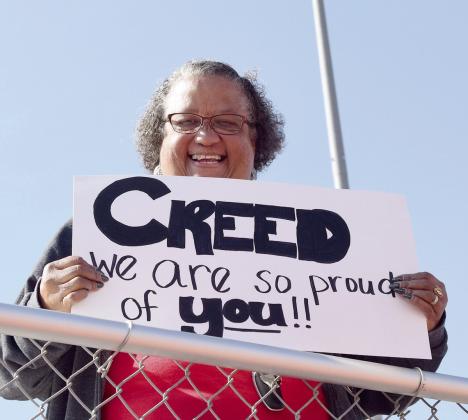 CREED
we are so proud
of you!!